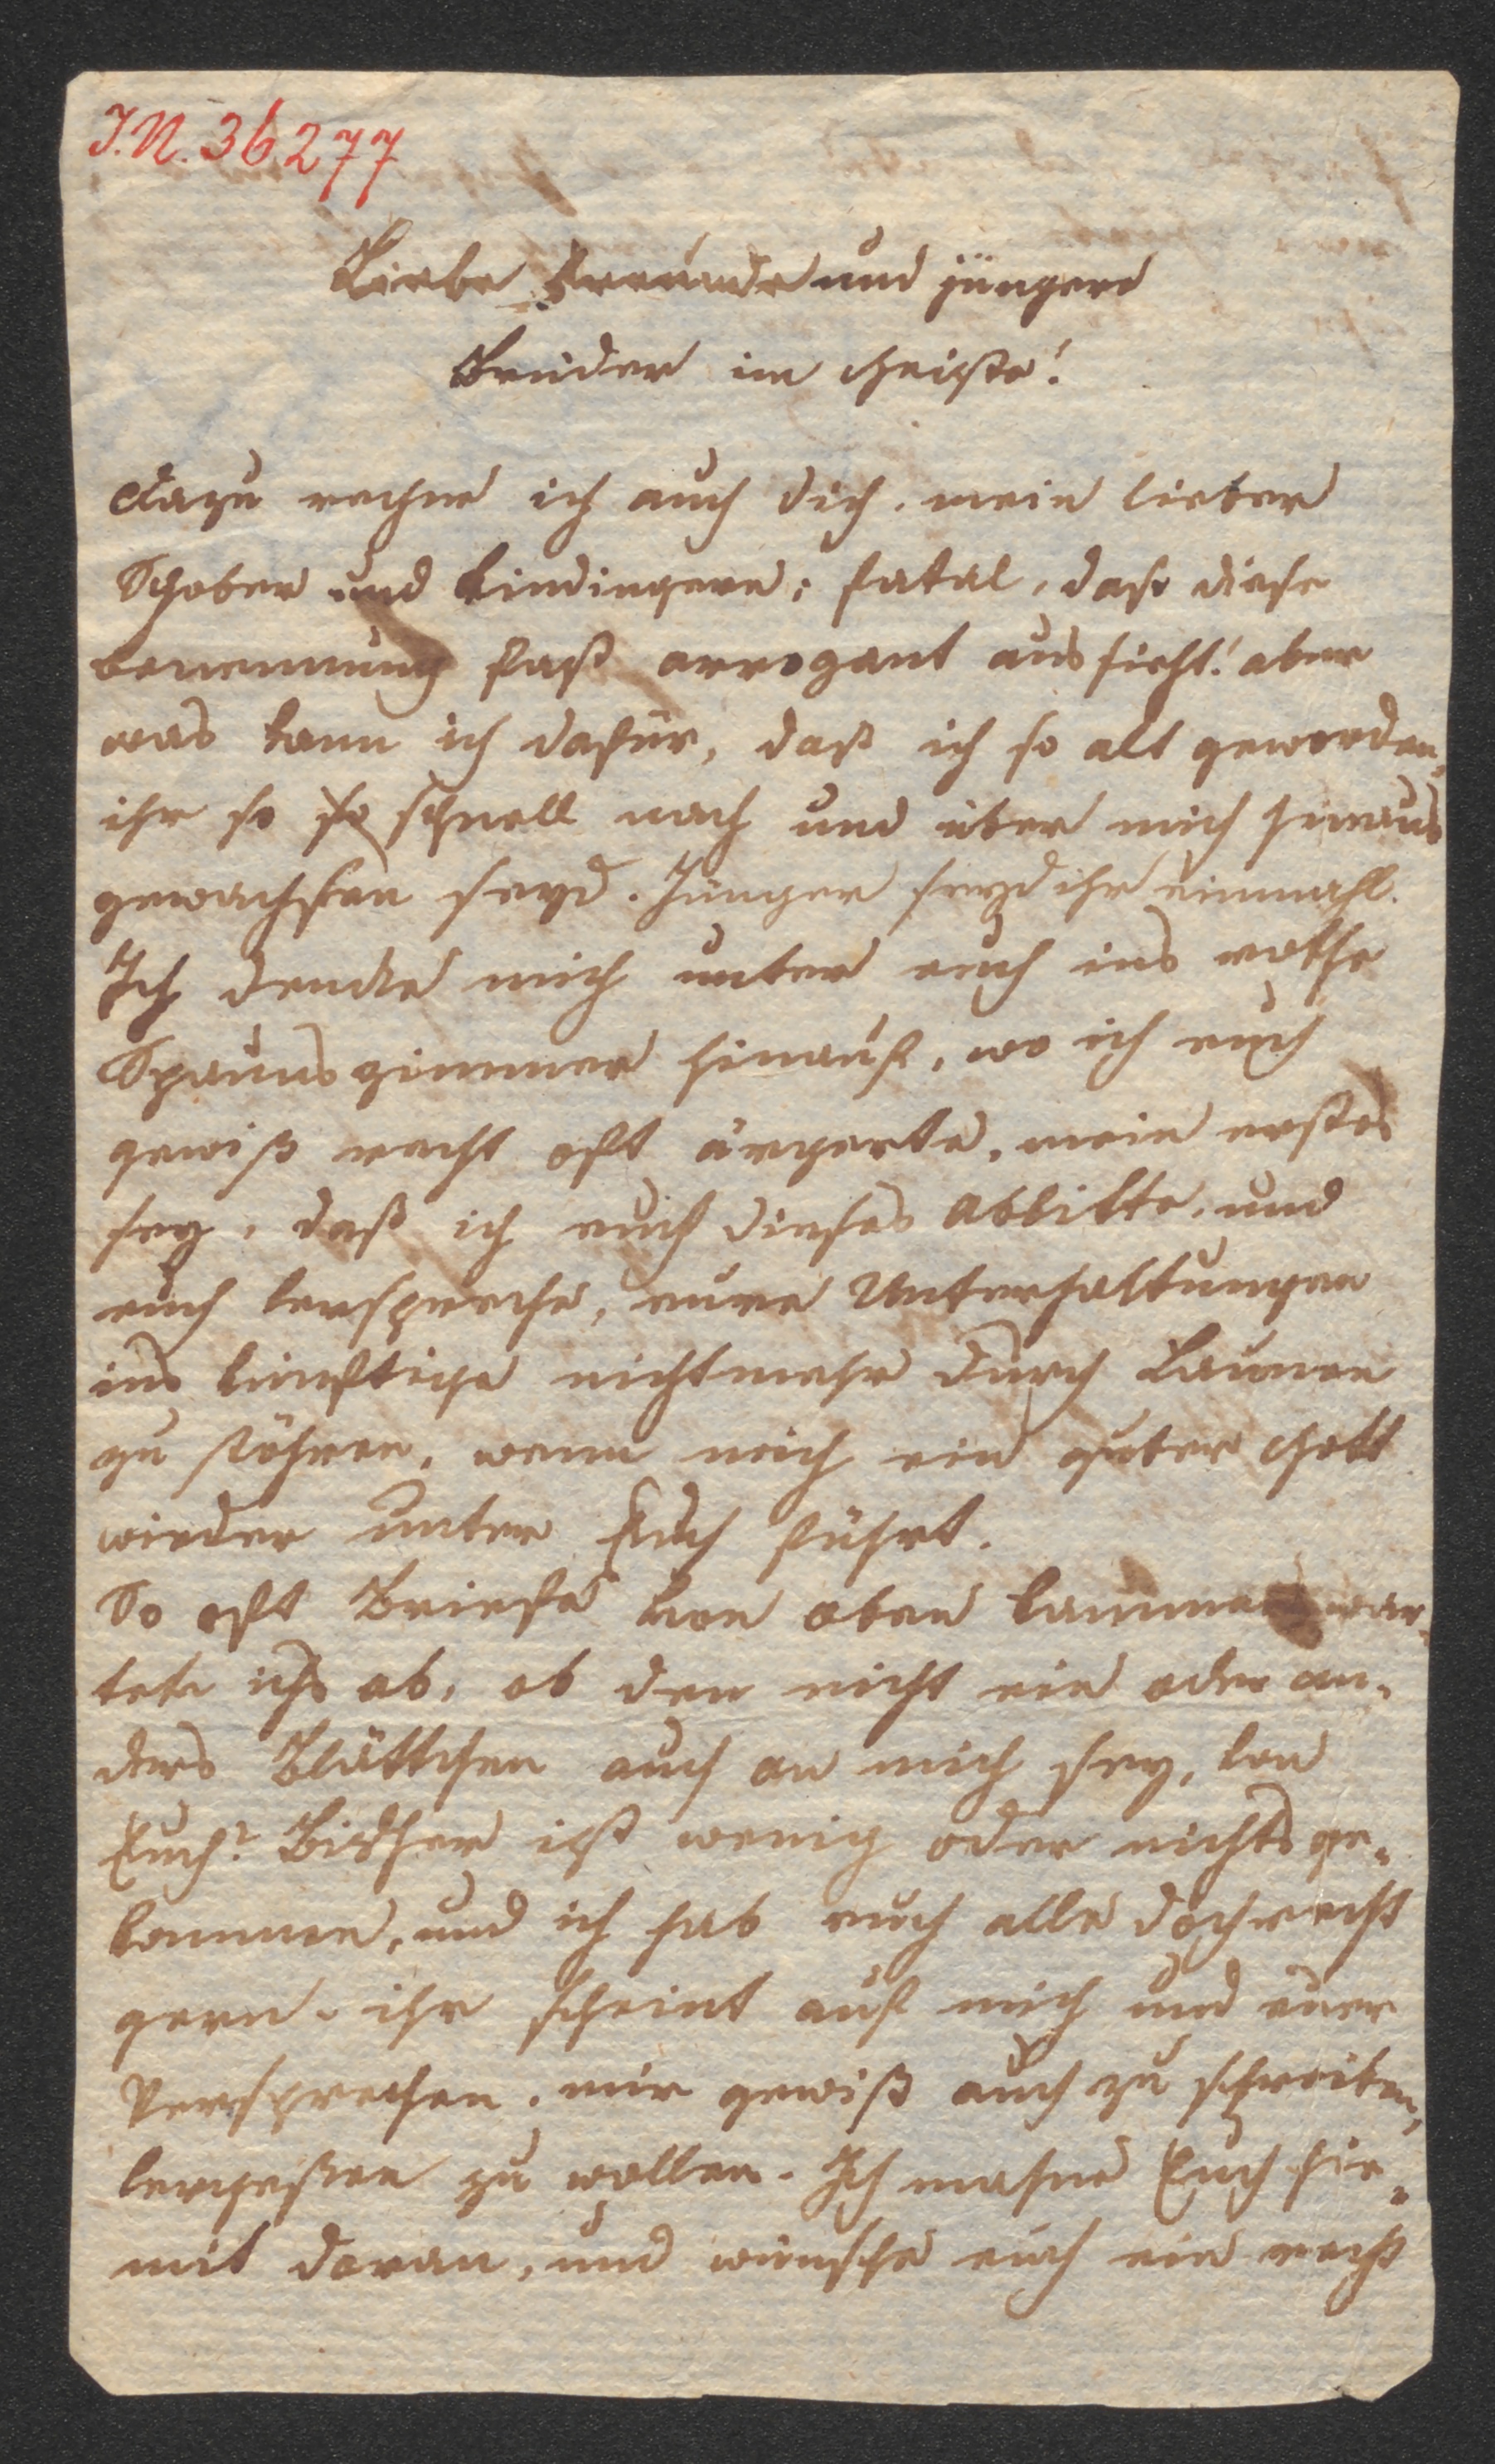 I.N. 36277
Liebe Freunde und jüngere
Brüder im Geiste!
Dazu rechne ich auch dich, mein lieber
Schober und Kindingern; fatal, daß diese
Benennung fast arrogant aussieht! aber
was kann ich dafür, daß ich so alt geworden,
ihr so so schnell nach und über mich hinaus
gewachsen seyd. Jünger seyd ihr einmahl.
Ich denke mich unter euch ins rothe
Spaunszimmer hinauf, wo ich euch
gewiß recht oft ärgerte, mein erstes
sey, daß ich euch dieses abbitte, und
euch verspreche, eure Unterhaltungen
ins künftige nicht mehr durch Launen
zu stöhren, wenn mich ein guter Gott
wieder unter Euch führt.
So oft Briefe von oben kammen war-
tete ichs ab, ob den nicht ein oder an-
ders Blättchen auch an mich sey, von
Euch? Bisher ist wenig oder nichts ge-
kommen, und ich hab euch alle doch recht
gern. ihr scheint auf mich und euer
Versprechen, mir gewiß auch zu schreiben,
vergeßen zu wollen. Ich mahne Euch hie-
mit daran, und wünsche euch ein recht